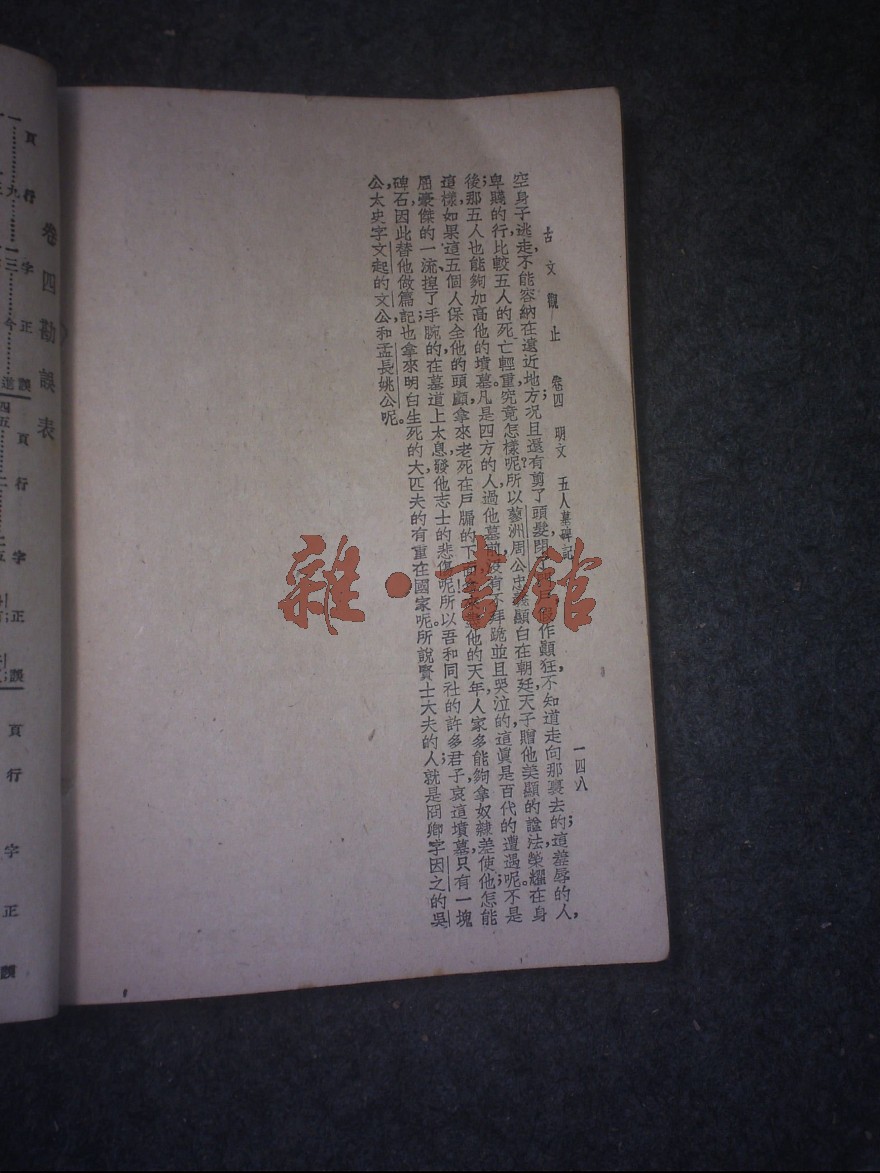 古文觀止 卷四 明文 五人墓碑記 一四八
空身子逃走，不能容納在遠近地方；况且還有剪了頭髮閉了 作顛狂，不知道走向那裏去的；這羞辱的人，
卑賤的行，比較五人的死亡，輕重究竟怎樣呢？所以蓼洲周公，忠義顯白在朝廷，天子贈他美顯的諡法，榮耀在身
後；那五人也能夠加高他的墳墓。凡是四方的人，過他墓前，沒有不拜跪並且哭泣的，這眞是百代的遭遇呢；不是
這樣，如果這五個人保全他的頭顱，拿來老死在戶牖的下面， 他的天年，人家多能夠拿奴隸差使他，怎能
屈豪傑的一流，揘了手腕的在墓道上太息，發他志士的悲傷呢。所以吾和同社的許多君子，哀這墳墓只有一塊
碑石，因此替他做篇記；也拿來明白生死的大，匹夫的有重在國家呢。所說賢士大夫的人，就是冏卿字因之的吳
公，太史字文起的文公，和孟長姚公呢。
卷四勘誤表
頁 行 字 正 誤
頁 行 字 正 誤
頁 行 字 正 誤
雜·書館